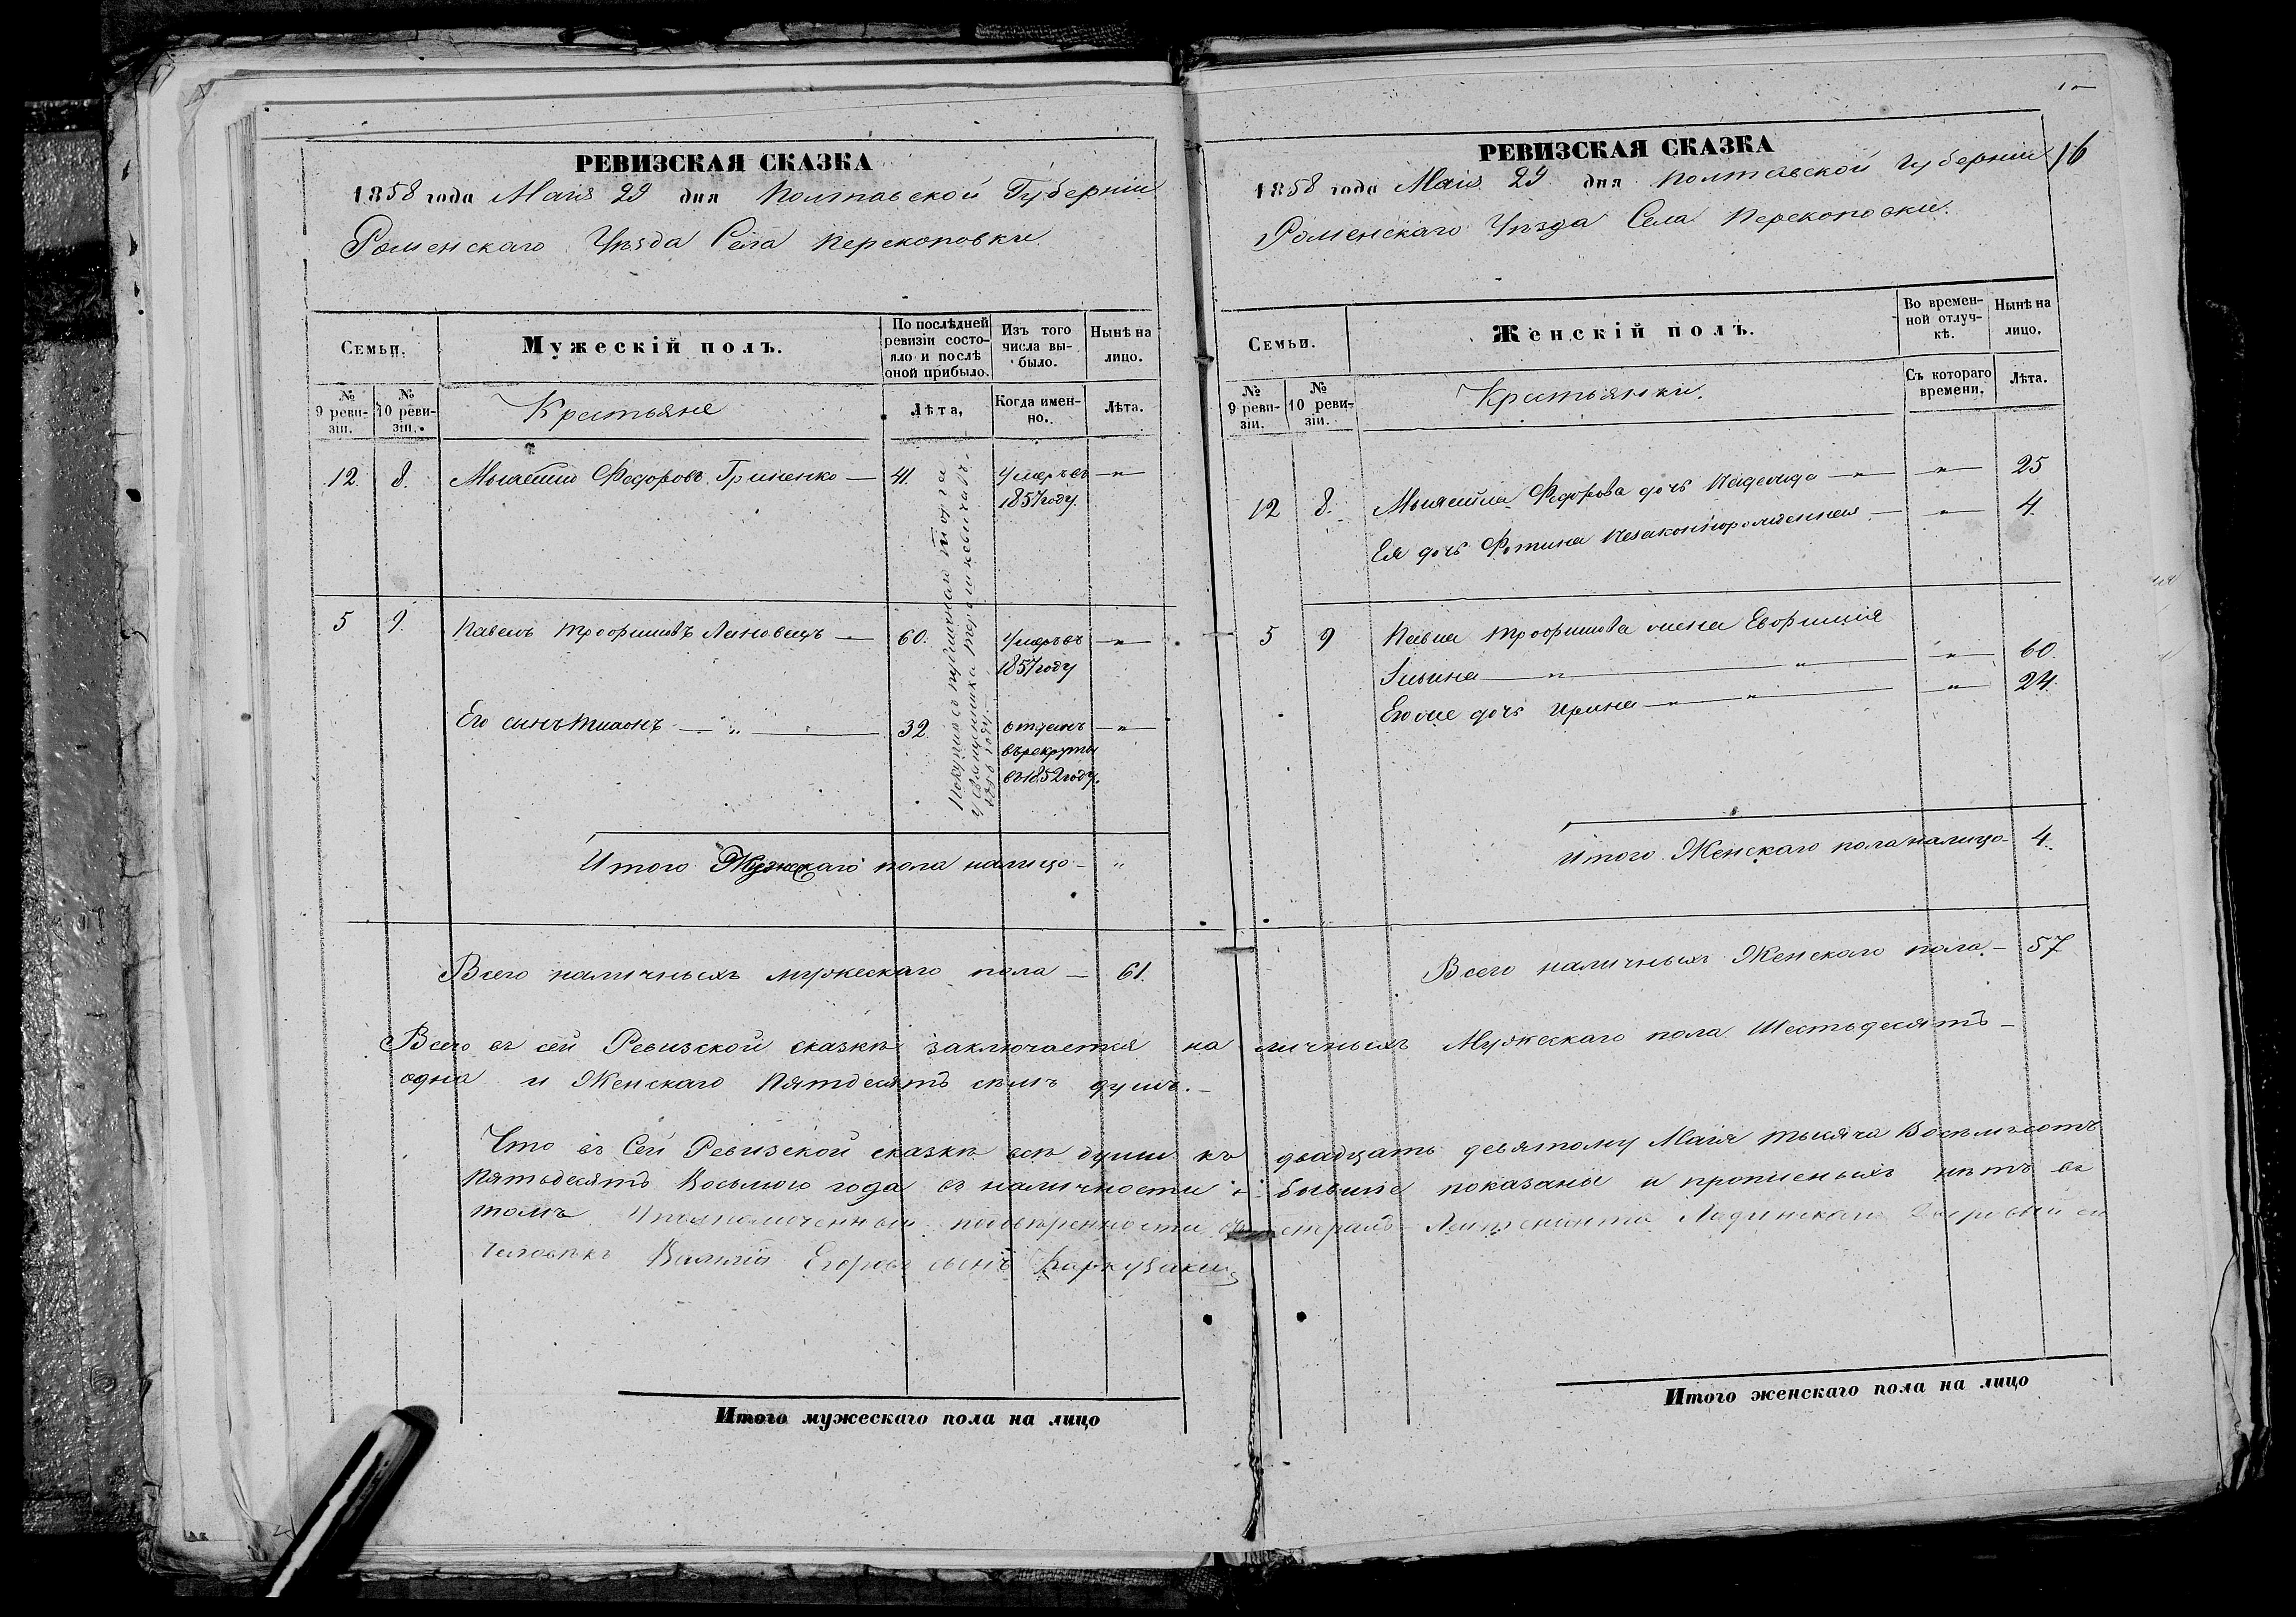 РЕВИЗСКАЯ СКАЗКА
1858 года Маия 29 дня Полтавской Губерніи
Роменскаго Уѣзда Села Перекоповки.
Семьи.
Мужескій полъ.
По послѣдней ревизіи состояло и послѣ оной прибыло.
Изъ того числа выбыло.
Нынѣ на лицо.
№ 9 ревизіи.
№ 10 ревизіи.
Крестьяне
Лѣта.
Когда именно.
Лѣта.
12 8. Федоровъ Гриненко — 41. Умеръ въ — „ —
1857 году.
5 9. Павелъ Трофимовъ Линовецъ — 60. Умеръ въ — „ —
1857 году
Его сынъ — „ — 32. отданъ — „ —
въ рекруты
въ 1852 году.
Итого Мужескаго пола налицо — „
Всего наличныхъ мужескаго пола — 61.
РЕВИЗСКАЯ СКАЗКА
16
1858 года Маия 29 дня Полтавской Губерніи
Роменскаго Уѣзда Села Перекоповки.
Семьи.
Женскій полъ.
Во временной отлучкѣ.
Нынѣ на лицо.
№ 9 ревизіи.
№ 10 ревизіи.
Крестьянки.
Съ котораго времени.
Лѣта.
12 8. Федорова дочь Надежда — „ — „ — 25
Ея дочь Фотина Незаконнорожденная — „ — 4.
5 9 Павла Трофимова жена Евфимія
Ильина — „ — „ — „ — 60.
Его же дочь Ирина — „ — „ — „ — 24.
Итого Женскаго пола налицо — 4.
Всего наличныхъ Женскаго пола. — 57
Всего въ сей Ревизской сказкѣ заключается наличныхъ Мужескаго пола Шестьдесятъ —
одна и Женскаго Пятдесятъ сѣмь душъ. —
Что въ Сей Ревизской сказкѣ всѣ души къ двадцать девятому Маія тысяча Восѣмьсотъ
Пятьдесятъ Восьмого года въ наличности бывшіе показаны и прописныхъ нѣтъ въ
томъ
человѣкъ Егоровъ сынъ
Итого мужескаго пола на лицо
Итого женскаго пола на лицо